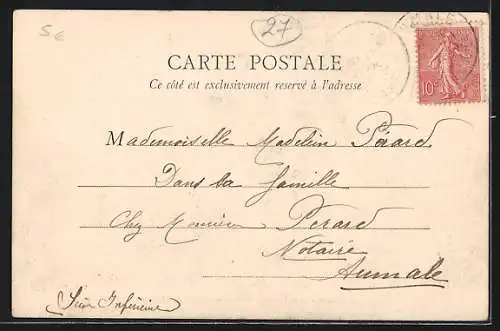 5 €
27
CARTE POSTALE
Ce côté est exclusivement reservé à l'adresse
10
Mademoiselle Madelein Pérard
Dans la famille
Chez Monsieur Perard
Notaire
Aumale
Seine Inférieure